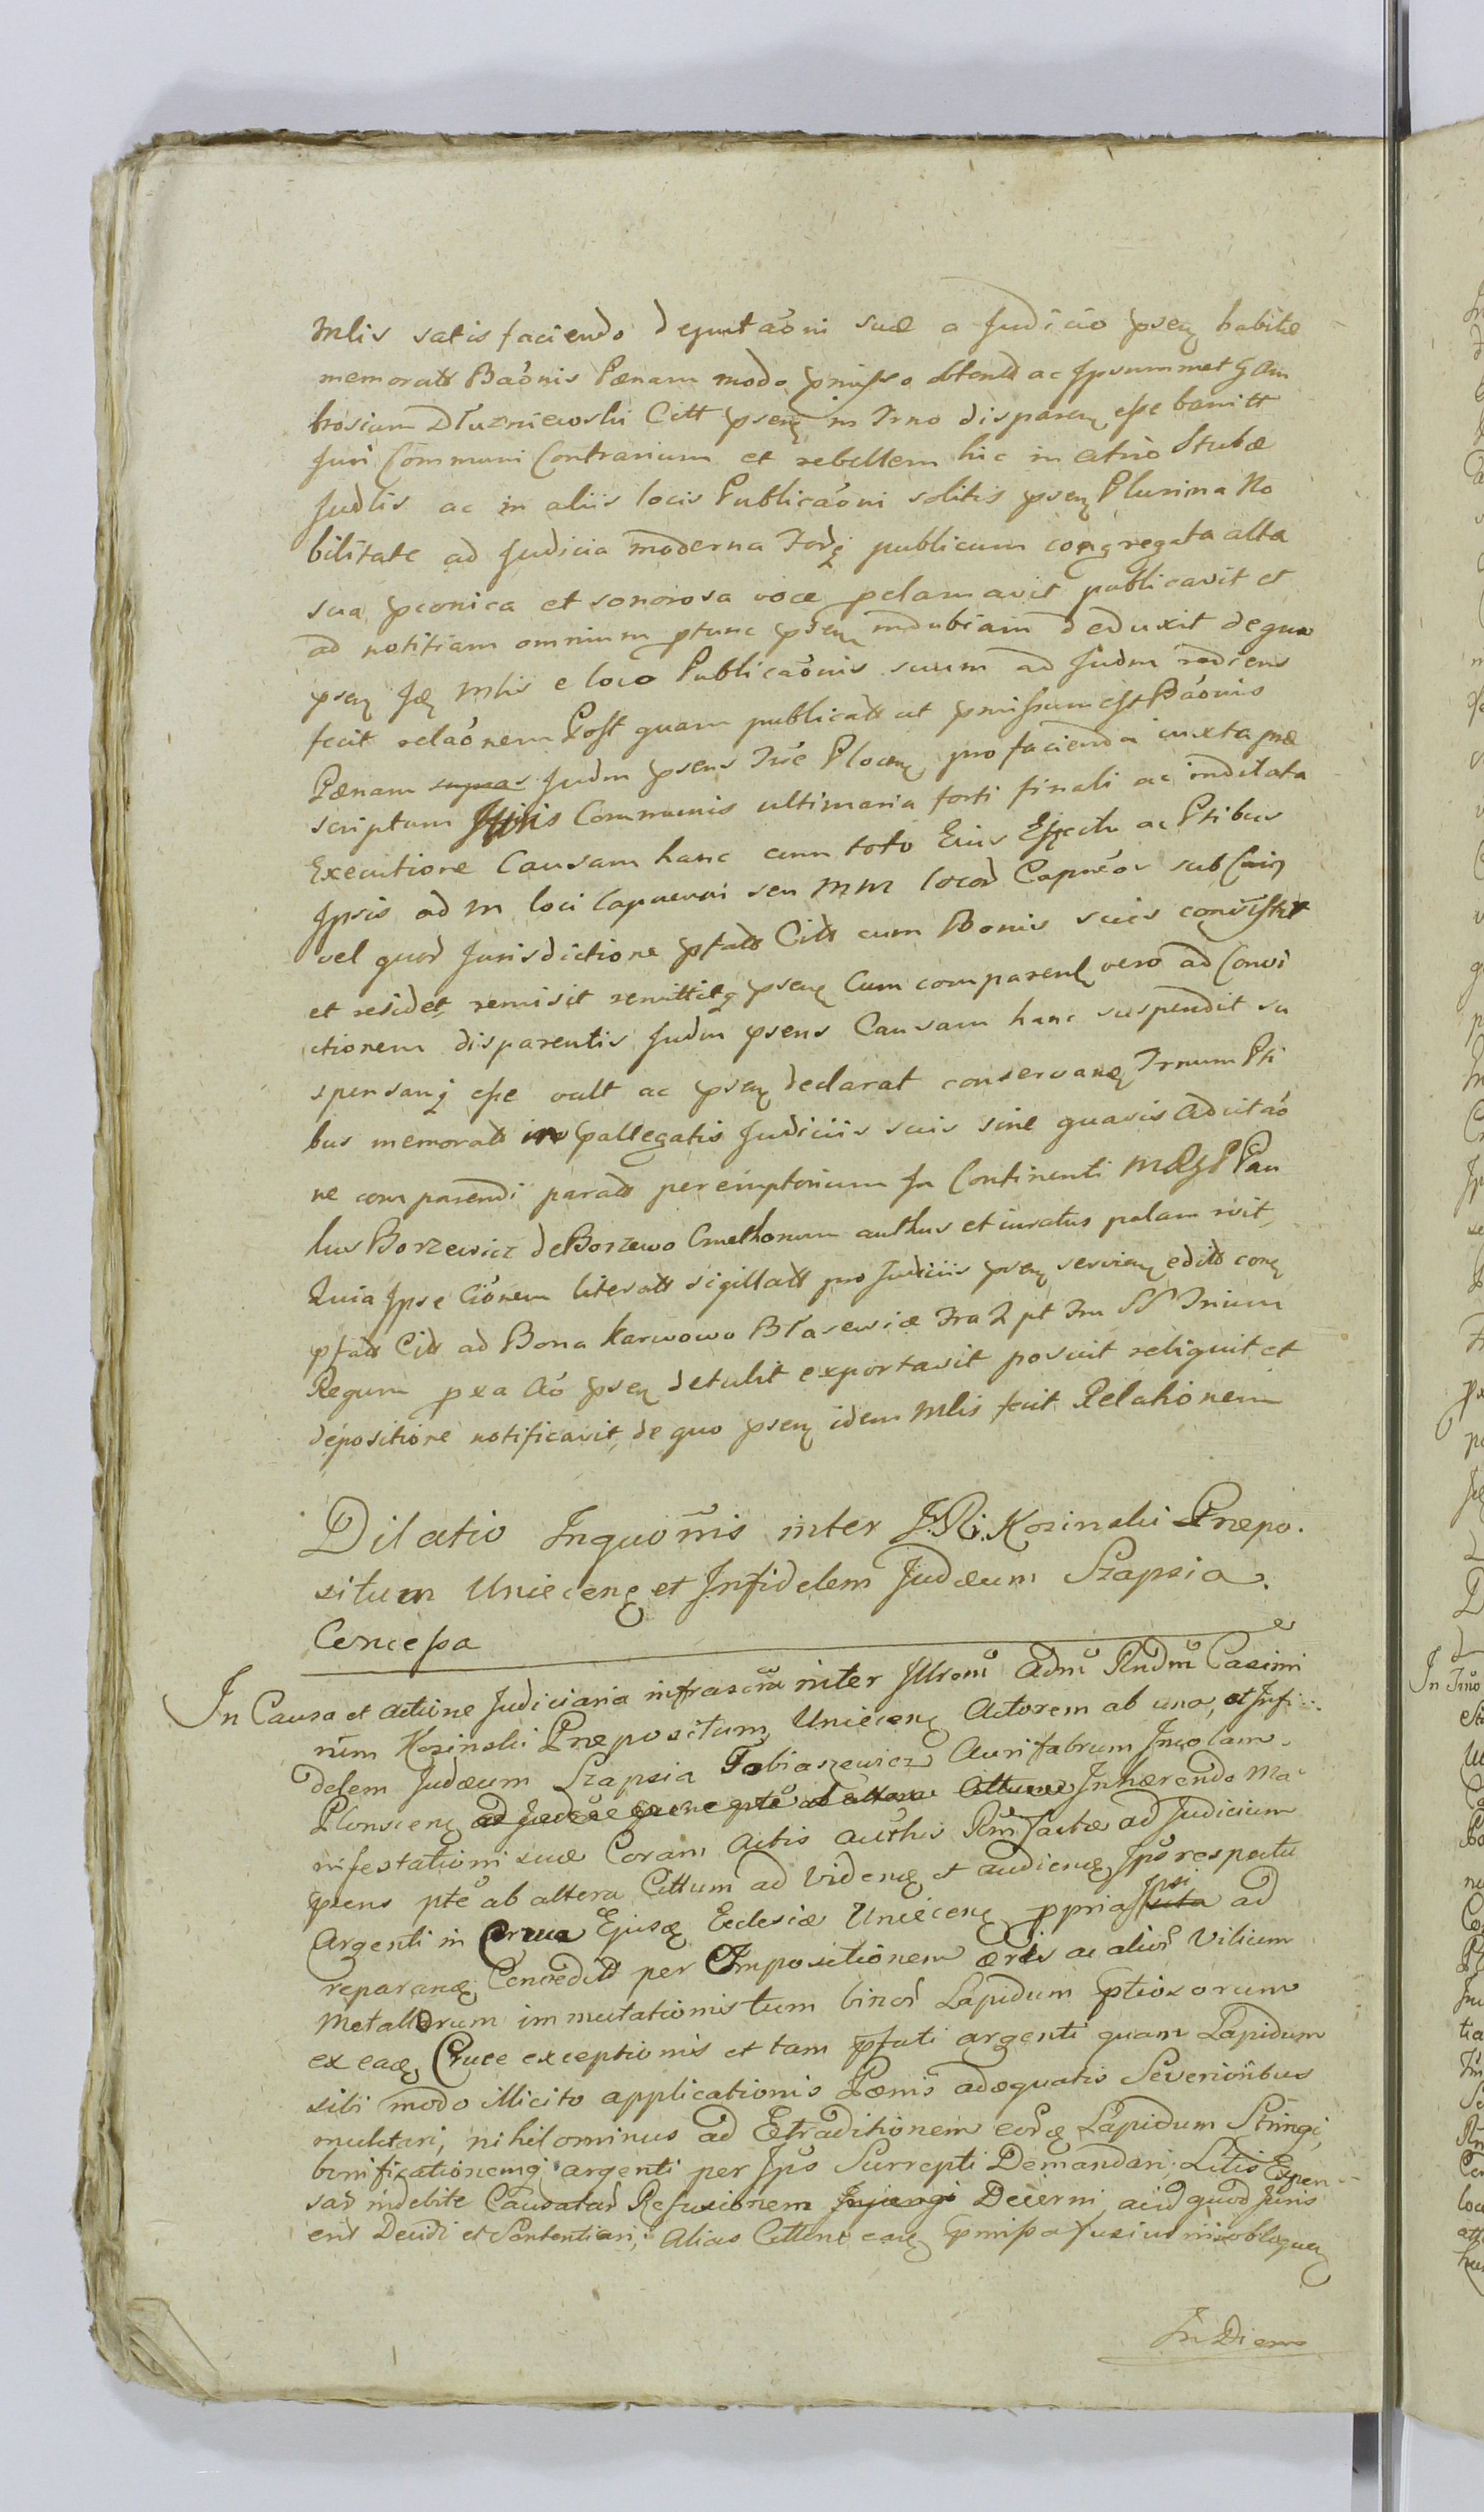 Mlis satisfaciendo deputaõni suæ a Judicio pseñ habitæ
memoratt Baõnis Pænam modo pmisso obtentt ac Ipsummet G Am
brosium Dłuzniewoski Citt pseñ in Trno disparen esse banitt
Juri Communi Contrarium et rebellem hic in atrio Stubæ
Judlis ac in aliis locis Publicaõni solitis pseñ Plurima No
bilitate ad Judicia moderna Fodq publicum congregata alta
sua pconica et sonorosa voce pclamavit publicavit et
ad notitiam omnium ptunc pseñ indubiam deduxit de quo
pseñ Id Mlis e loco Publicaõnis suum ad Judm rediens
fecit relaõnem Post quam publicatt ut pmissum est Baõnis
Pænam Judm psens Trre Plocen pro facienda iuxta præ
scriptum Juris Communis ultimaria forti finali ac indilata
Executione Causam hanc cum toto Eius Effectu ac Ptibus
Ipsis ad M loci Capneum seu MM locor Capneos sub Cuius
vel quor Jurisdictione pfatt Citt cum Bonis suis consistit
et residet remisit remittitq pseñ Cum comparent vero ad Convi
ctionem disparentis Judm psens Causam hanc suspendit su
spensamq esse vult ac pseñ declarat conservand Trnum Pti
bus memoratt in pallegatis Judiciis suis sine quavis Adcitaõ
ne comparendi paratt peremptorium In Continenti Mlis P Pau
lus Borzewicz de Borzewo Cmethonum authus et iuratus palam rrit
Quia Ipse Ciõnem literatt sigillatt pro Judiciis pseñ servien editt con
pfatt Citt ad Bona Karwowo Błasewiæ Fra 2 pt Fm SS Trium
Regum pxa Aõ pseñ detulit exportavit posuit reliquit et
depositione notificavit, de quo pseñ idem Mlis fecit Relationem
Dilatio Inquoñis inter J.R. Kosinski Præpo.
situm Uniecen et Infidelem Judæum Szapsia.
Concessa
In Causa et actione Judiciaria infrascra inter Illrem Adm Rndm Casimi
rum Kosinski Præpositum Uniecen Actorem ab una, et Infi
delem Judæum Szapsia Tobiaszewicz Aurifabrum Incolam
Plonscen Inhærendo Ma
nifestationi suæ Coram Actis authcis Rm factæ ad Judicium
psens pte ab altera Cittum ad Videnđ et audienđ, Ipo respectu
Argenti in Cruce Ejusđ Ecclesiæ Uniecen ppria Ipsi ad
reparanđ Concredit per Impositionem æris ac alior Vilium
Metallorum immutationis tum binor Lapidum ptiosorum
ex eađ Cruce exceptionis et tam pfati argenti quam Lapidum
sibi modo illicito applicationis Pænis adæquatis Severioribus
mulctari, nihilominus ad Extraditionem eorđ Lapidum Stringi,
bonificationemq argenti per Ipo Surrepti Demandari Litis Expen
sar indebite Causatar Refusionem Injungi Decerni, acid quod Juris
erit Decidi et Sententiari, Alias Cittone eađ pmissa fusius in se obloquen
In Diem